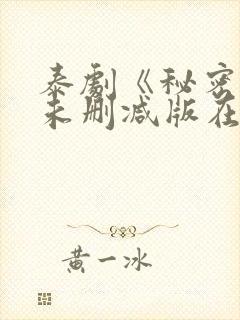 泰剧《秘密
未删减版在
黄一冰